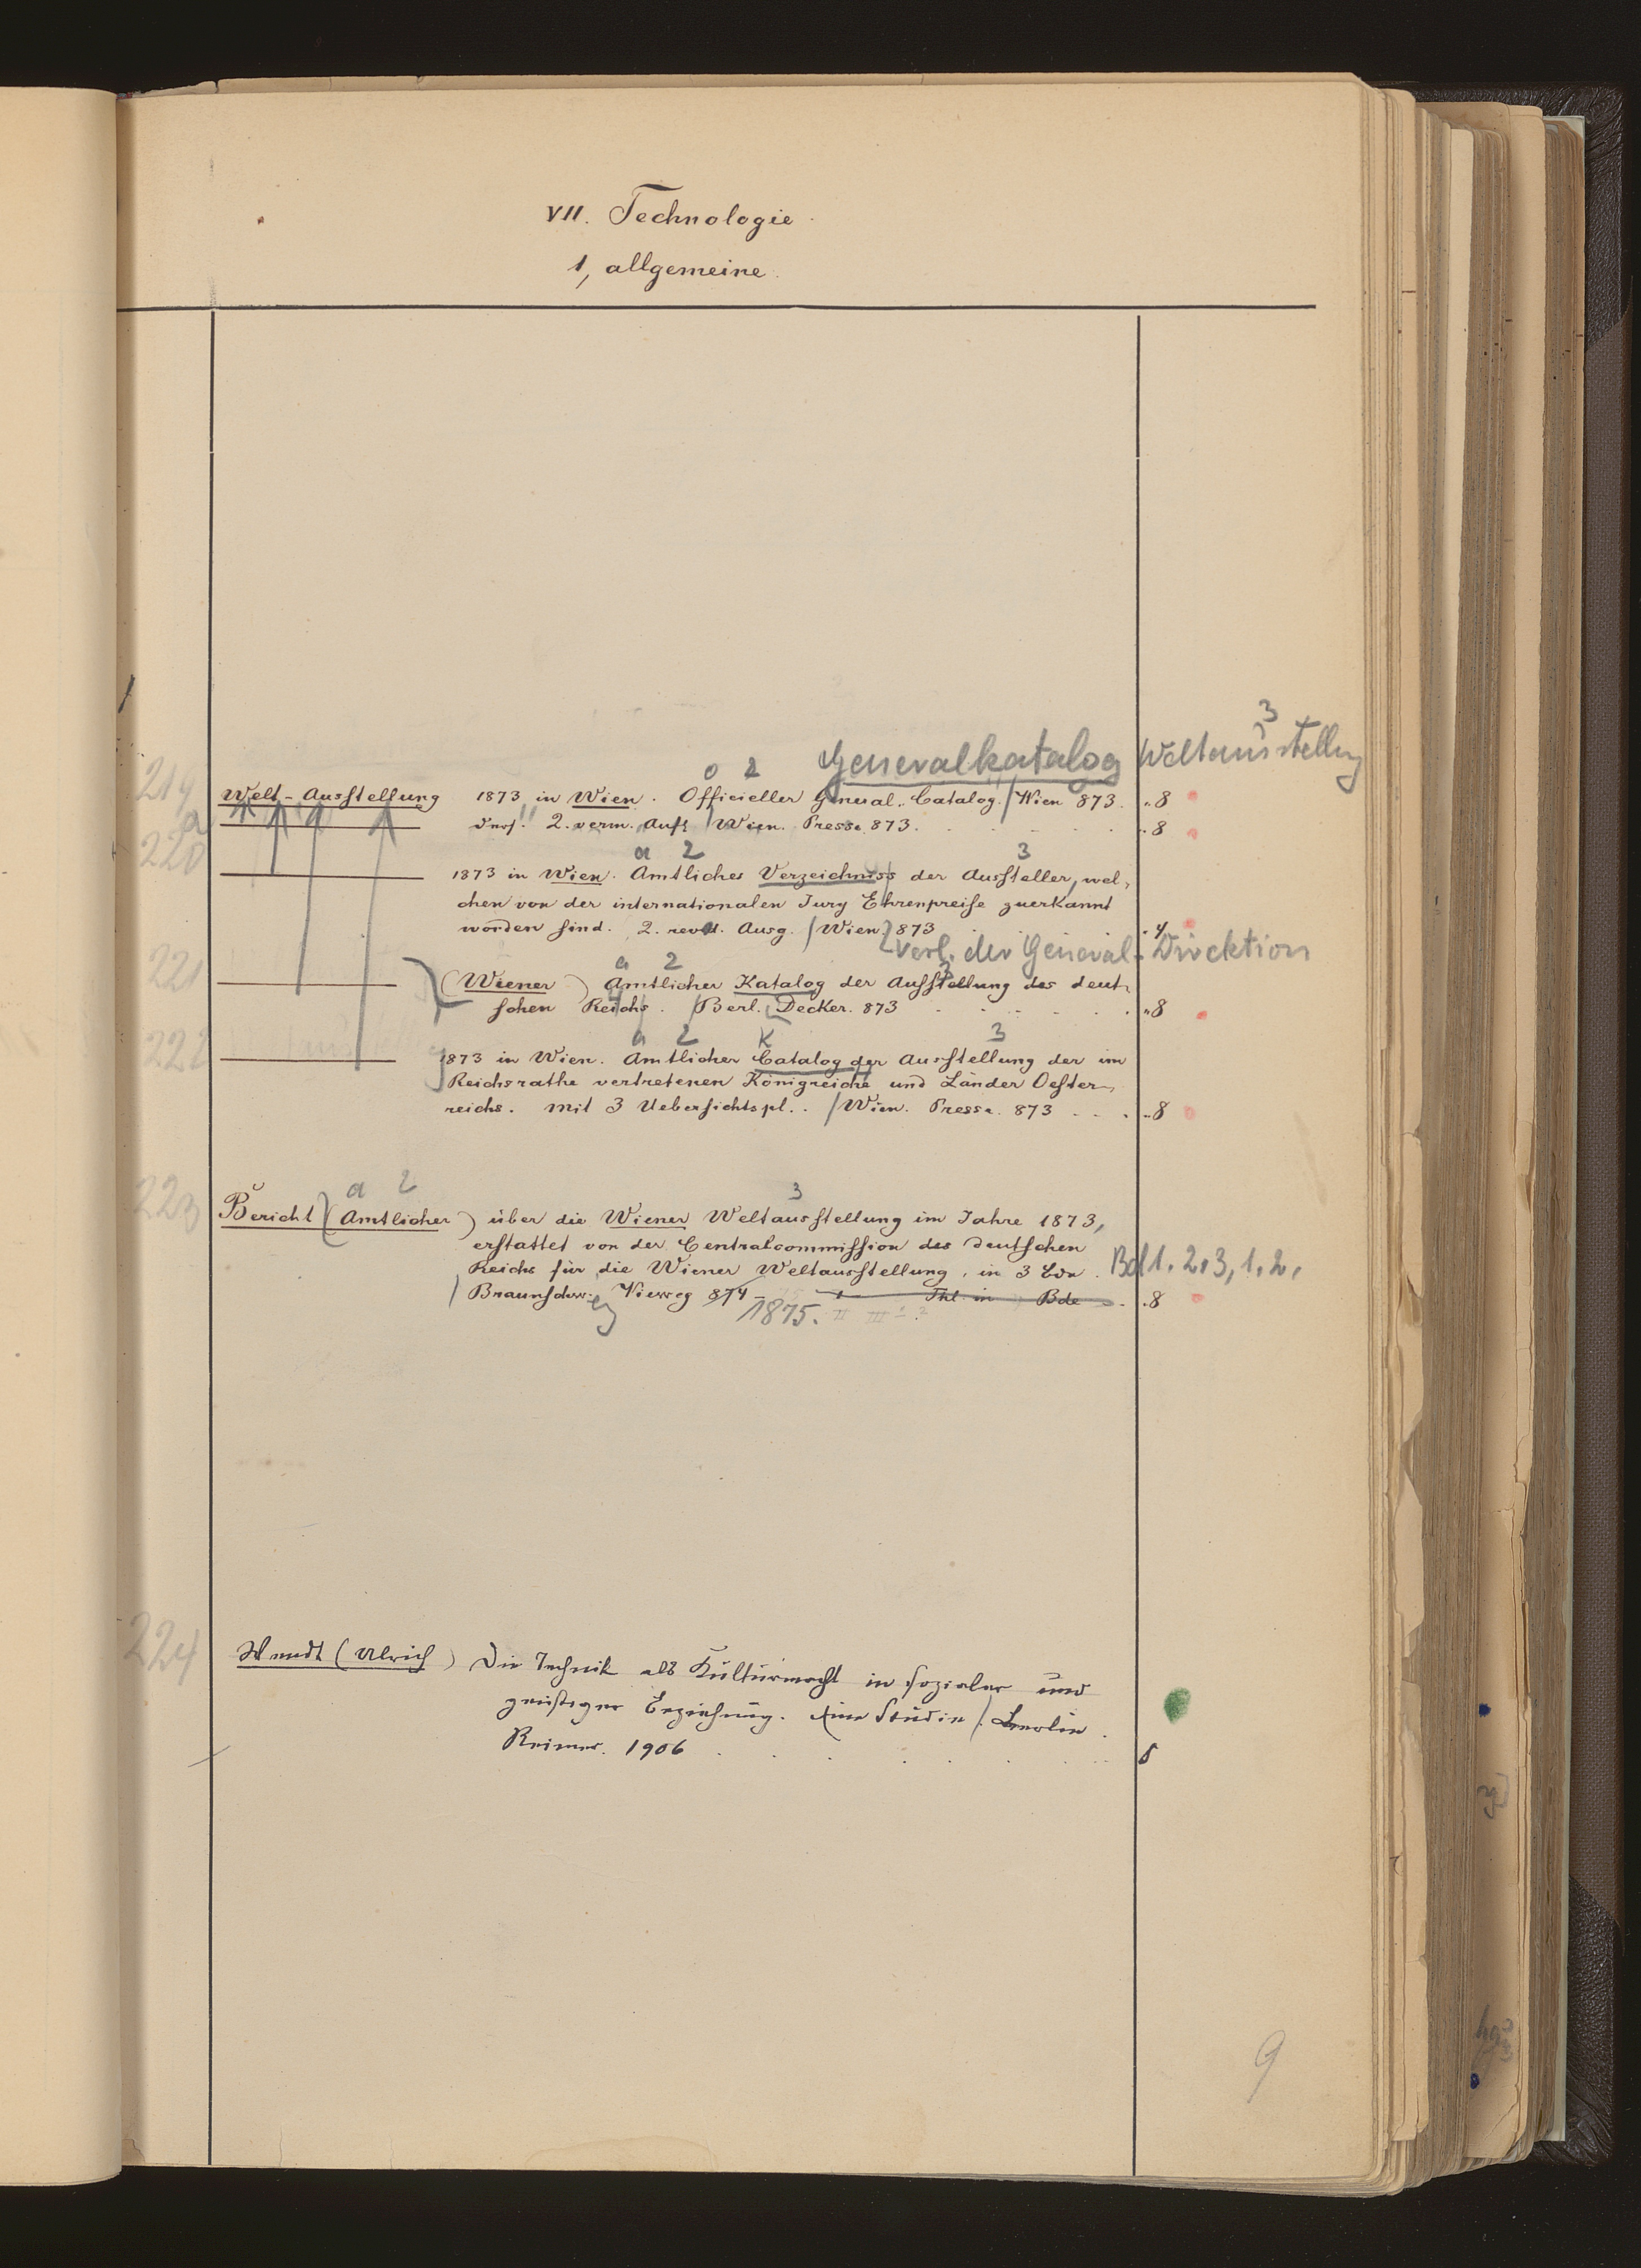 VII. Technologie.
1, allgemeine.
3
Generalkatalog Weltausstellg
o 2
219 Welt-Ausstellung 1873 in Wien. Officieller General-Catalog. / Wien 873. "8
a dass. 2. verm. Aufl. / Wien. Presse 873. "8
220 a 2 3
1873 in Wien. Amtliches Verzeichniss der Aussteller, wel-
chen von der internationalen Jury Ehrenpreise zuerkannt
worden sind. 2. revid. Ausg. / Wien 873 "4
Verl. der General-Direktion
221 a 2 3
(Wiener) Amtlicher Katalog der Ausstellung des deut-
schen Reichs. / Berl. Decker. 873 "8
222 a 2 K 3
1873 in Wien. Amtlicher Catalog der Ausstellung der im
Reichsrathe vertretenen Königreiche und Länder Oester-
reichs. Mit 3 Uebersichtspl. / Wien. Presse. 873 "8
223 a 2 3
Bericht (Amtlicher) über die Wiener Weltausstellung im Jahre 1873,
erstattet von der Centralcommission des deutschen
Reichs für die Wiener Weltausstellung, in 3 Bdn. Bd 1. 2. 3, 1. 2.
/ Braunschw. Vieweg 874- Thl. in Bde "8
eg 1875. II III 1. 2
224 Wendt (Ulrich) Die Technik als Kulturmacht in sozialer und
geistiger Beziehung. Eine Studie / Berlin.
Reimer. 1906 8
9